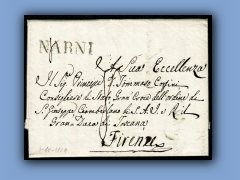 NARNI
A Sua Eccellenza
Il Sig. Principe D. Tommaso Corsini
Consigliere di Stato Gran Croce dell'ordine di
S. Giuseppe Ciambellano di S. A. I. e R. il
Gran Duca di Toscana
Firenze